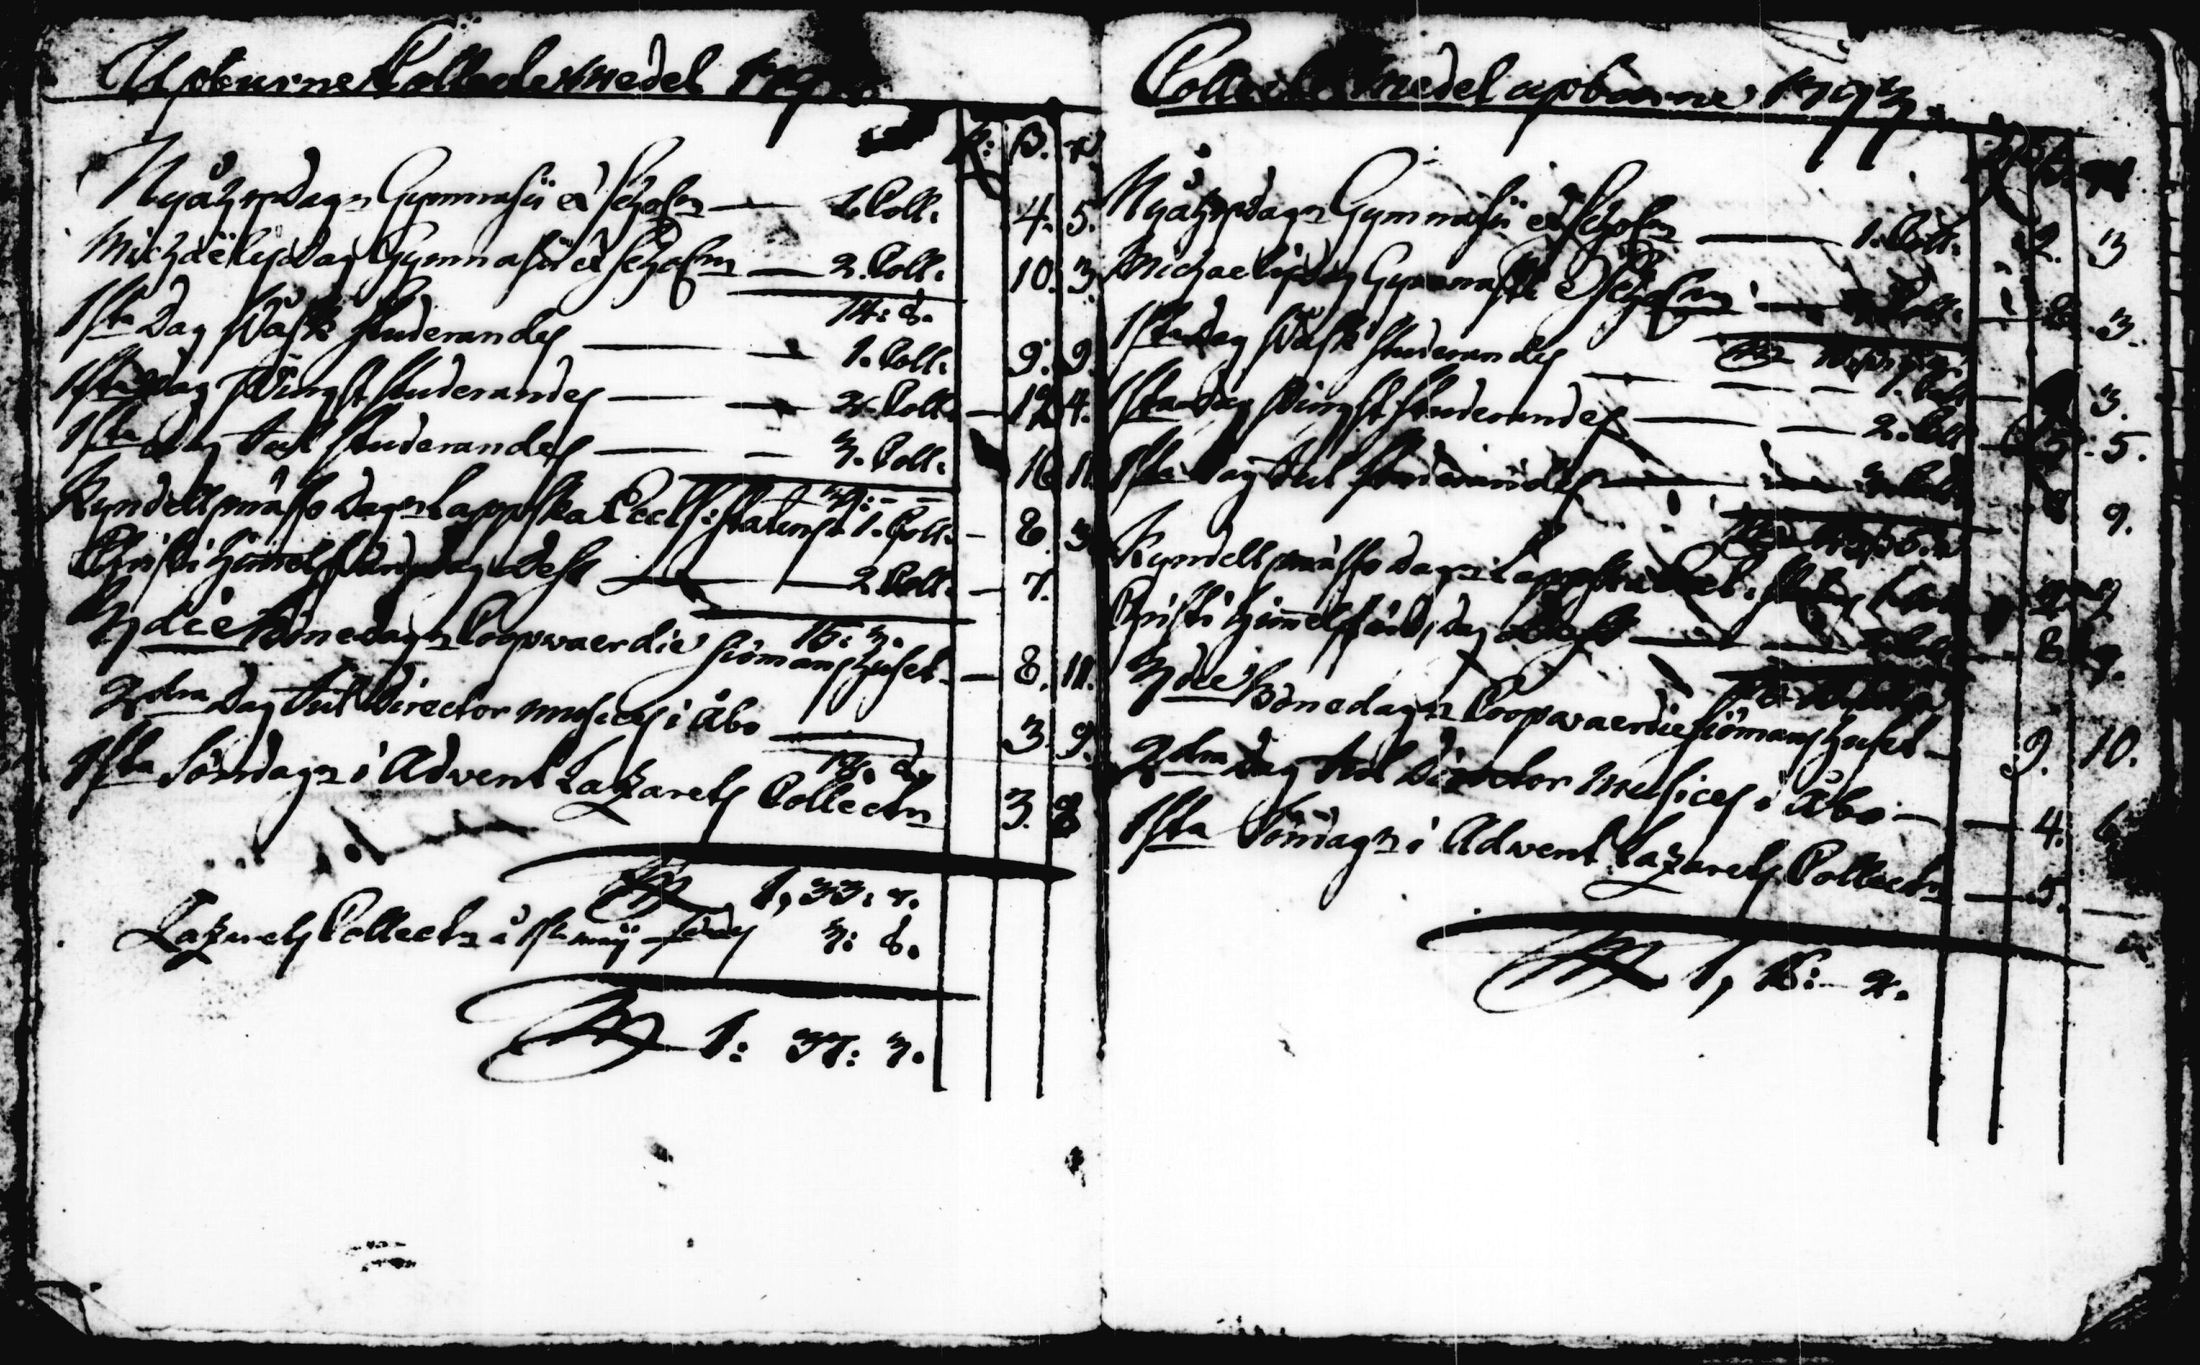 Upburne Collecte medel 179
R: ß. rs.
Nyåhrsdagen Gymnasii et Scholen — 1. Coll. 4. 5.
Michaëlis Dag Gymnasii et Scholen — 2. Coll. 10. 3.
14: 8.
1sta Dag Påsk Studerandes — 1. Coll. 9. 9.
1sta Dag Pingst Studerandes — 2. Coll. — 12 4.
1sta Dag Jul Studerandes — 3. Coll. 16 11.
39: — —
Kyndellsmässo Dagen Lappska Eccles: Statens 1. Coll. — 8. 3
Christi Himmelsfärds dag dess — 2. Coll. — 7.
15: 3.
3die Bönedagen Coopvaerdie Siömans huset — 8. 11.
2dra Dag Jul Director musices i Åbo — 3. 9.
12. 8.
1sta Söndagen i Advent Lazarets Collecten 3. 8
1, 33: 7.
Lazarets Collecten å 1sta maij 3: 8.
1: 37: 3.
Collecte medel upburne 1793.
Nyåhrsdagen Gymnasii et Scholen — 1. Coll. 2. 3
Michaelis Dag Gymnasii et Scholen — Coll. 8. 3.
1sta Dag Påsk Studerandes — 1. Coll. 3.
1sta Dag Pingst Studerandes — 2. Coll. 5. 5.
1sta Dag Jul Studerandes — 3. Coll. 8 9.
Kyndellsmässo Dagen Lappska Eccl. 9.
Christi Himmelsfärds dag — 2. Coll. — 8. 9.
3die Bönedagen Coopvaerdie Siömans huset — 9. 10.
2dra Dag Jul Director Musices i Åbo — 4. 6
1sta Söndagen i Advent Lazarets Collecten — 5. —
1, 15: 2.